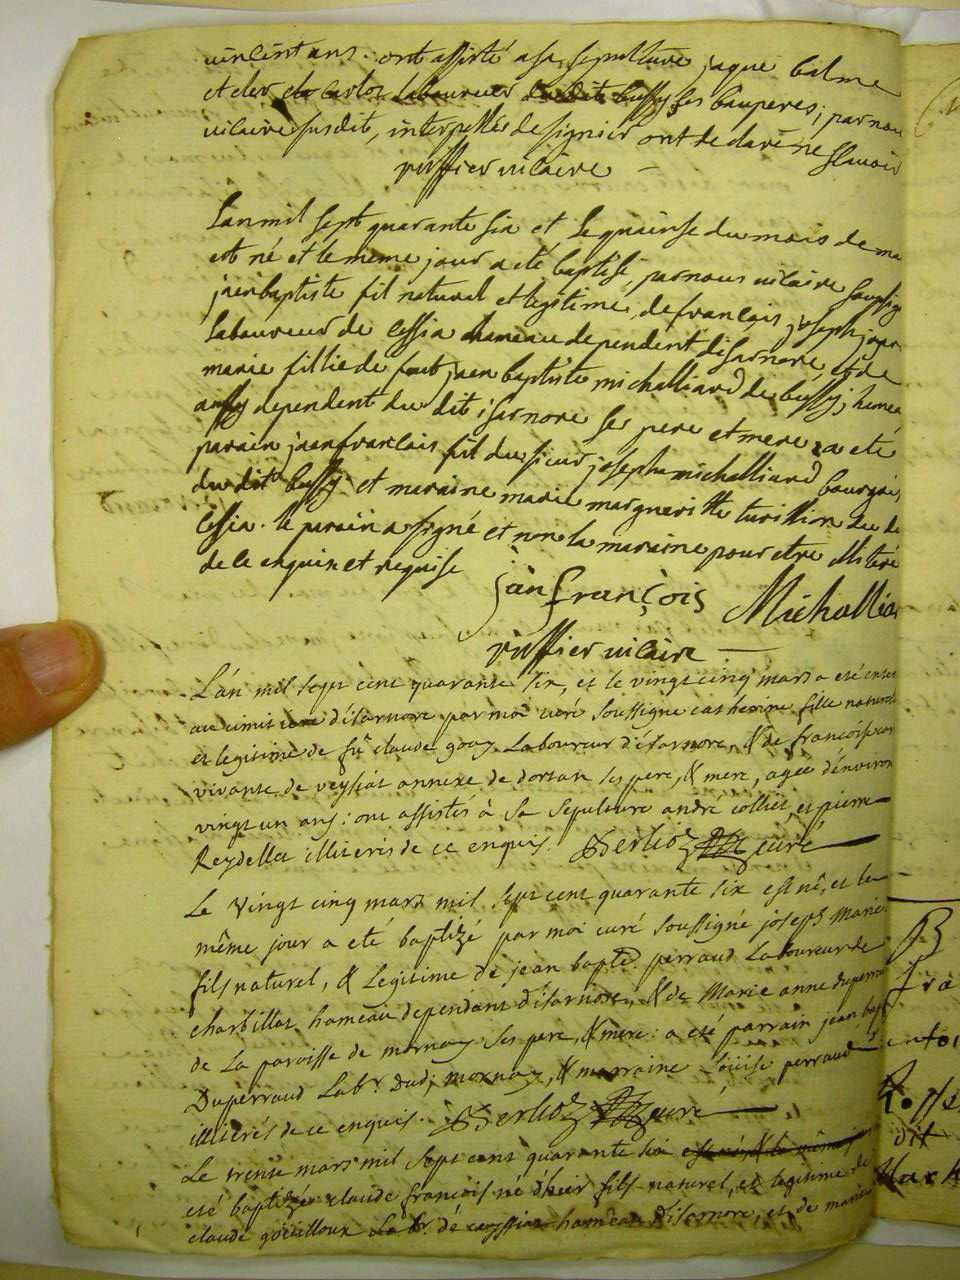 vincint ans. ont assisté a sa sepulture jaque balme
et laboureur du dit bussy ses bauperes; par nou
vicaire susdit, interpellés de signier ont declaré ne scavoir
ruffier vicaire
L'an mil sept quarante six et le quinse du mois de ma
est né et le meme jour a eté baptisé par nous vicaire soussig
jaen baptiste fil naturel et legitime de françois joseph
laboureur de cessia hameau dependent disarnore et de
marie fillie de feut jaen baptiste michalliard de bussy hamea
aussy dependent du dit isarnore ses pere et mere a eté
parain jaen francais fil du sieur joseph michalliard bourgois
du dit bussy et maraine marie margueritte turillion du de
Cessia. le parain a signé et non la maraine pour etre illiteré
de ce enquise et requise
jàn françòis Michallia
ruffier vicaire
L'an mil sept cent quarante six, et le vingt cinq mars a eté enter
au cimitiere d'isarnore par moi curé soussigne catherine fille naturel
et legitime de fû claude gouy Laboureur d'isarnore, & de francoise
vivante de veysiat annexe de dortan ses pere, & mere, agée d'environ
vingt un ans: ont assistés à sa sepulture andré colliet, et pierre
Reydellet illiterés de ce enquis. Berlioz curé
Le vingt cinq mars mil sept cent quarante six est né, et le
même jour a eté baptizé par moi curé soussigné joseph Marie
fils naturel, & Legitime de jean bapte. perraud Laboureur de
charbillat hameau dependant d'isarnore, & de Marie anne duperrau
de La paroisse de mornay ses pere, & mere: a eté parrain jean bapt
Duperraud Labr. dud; mornay, & marraine Louise perraud
illiterés de ce enquis. Berlioz curé
Le trente mars mil sept cent quarante six est né, & le même jour
eté baptizé claude françois né d'hier fils naturel, et legitime de
claude goeilloux Labr. de ceyssiat hameau d'isarnore, et de marie